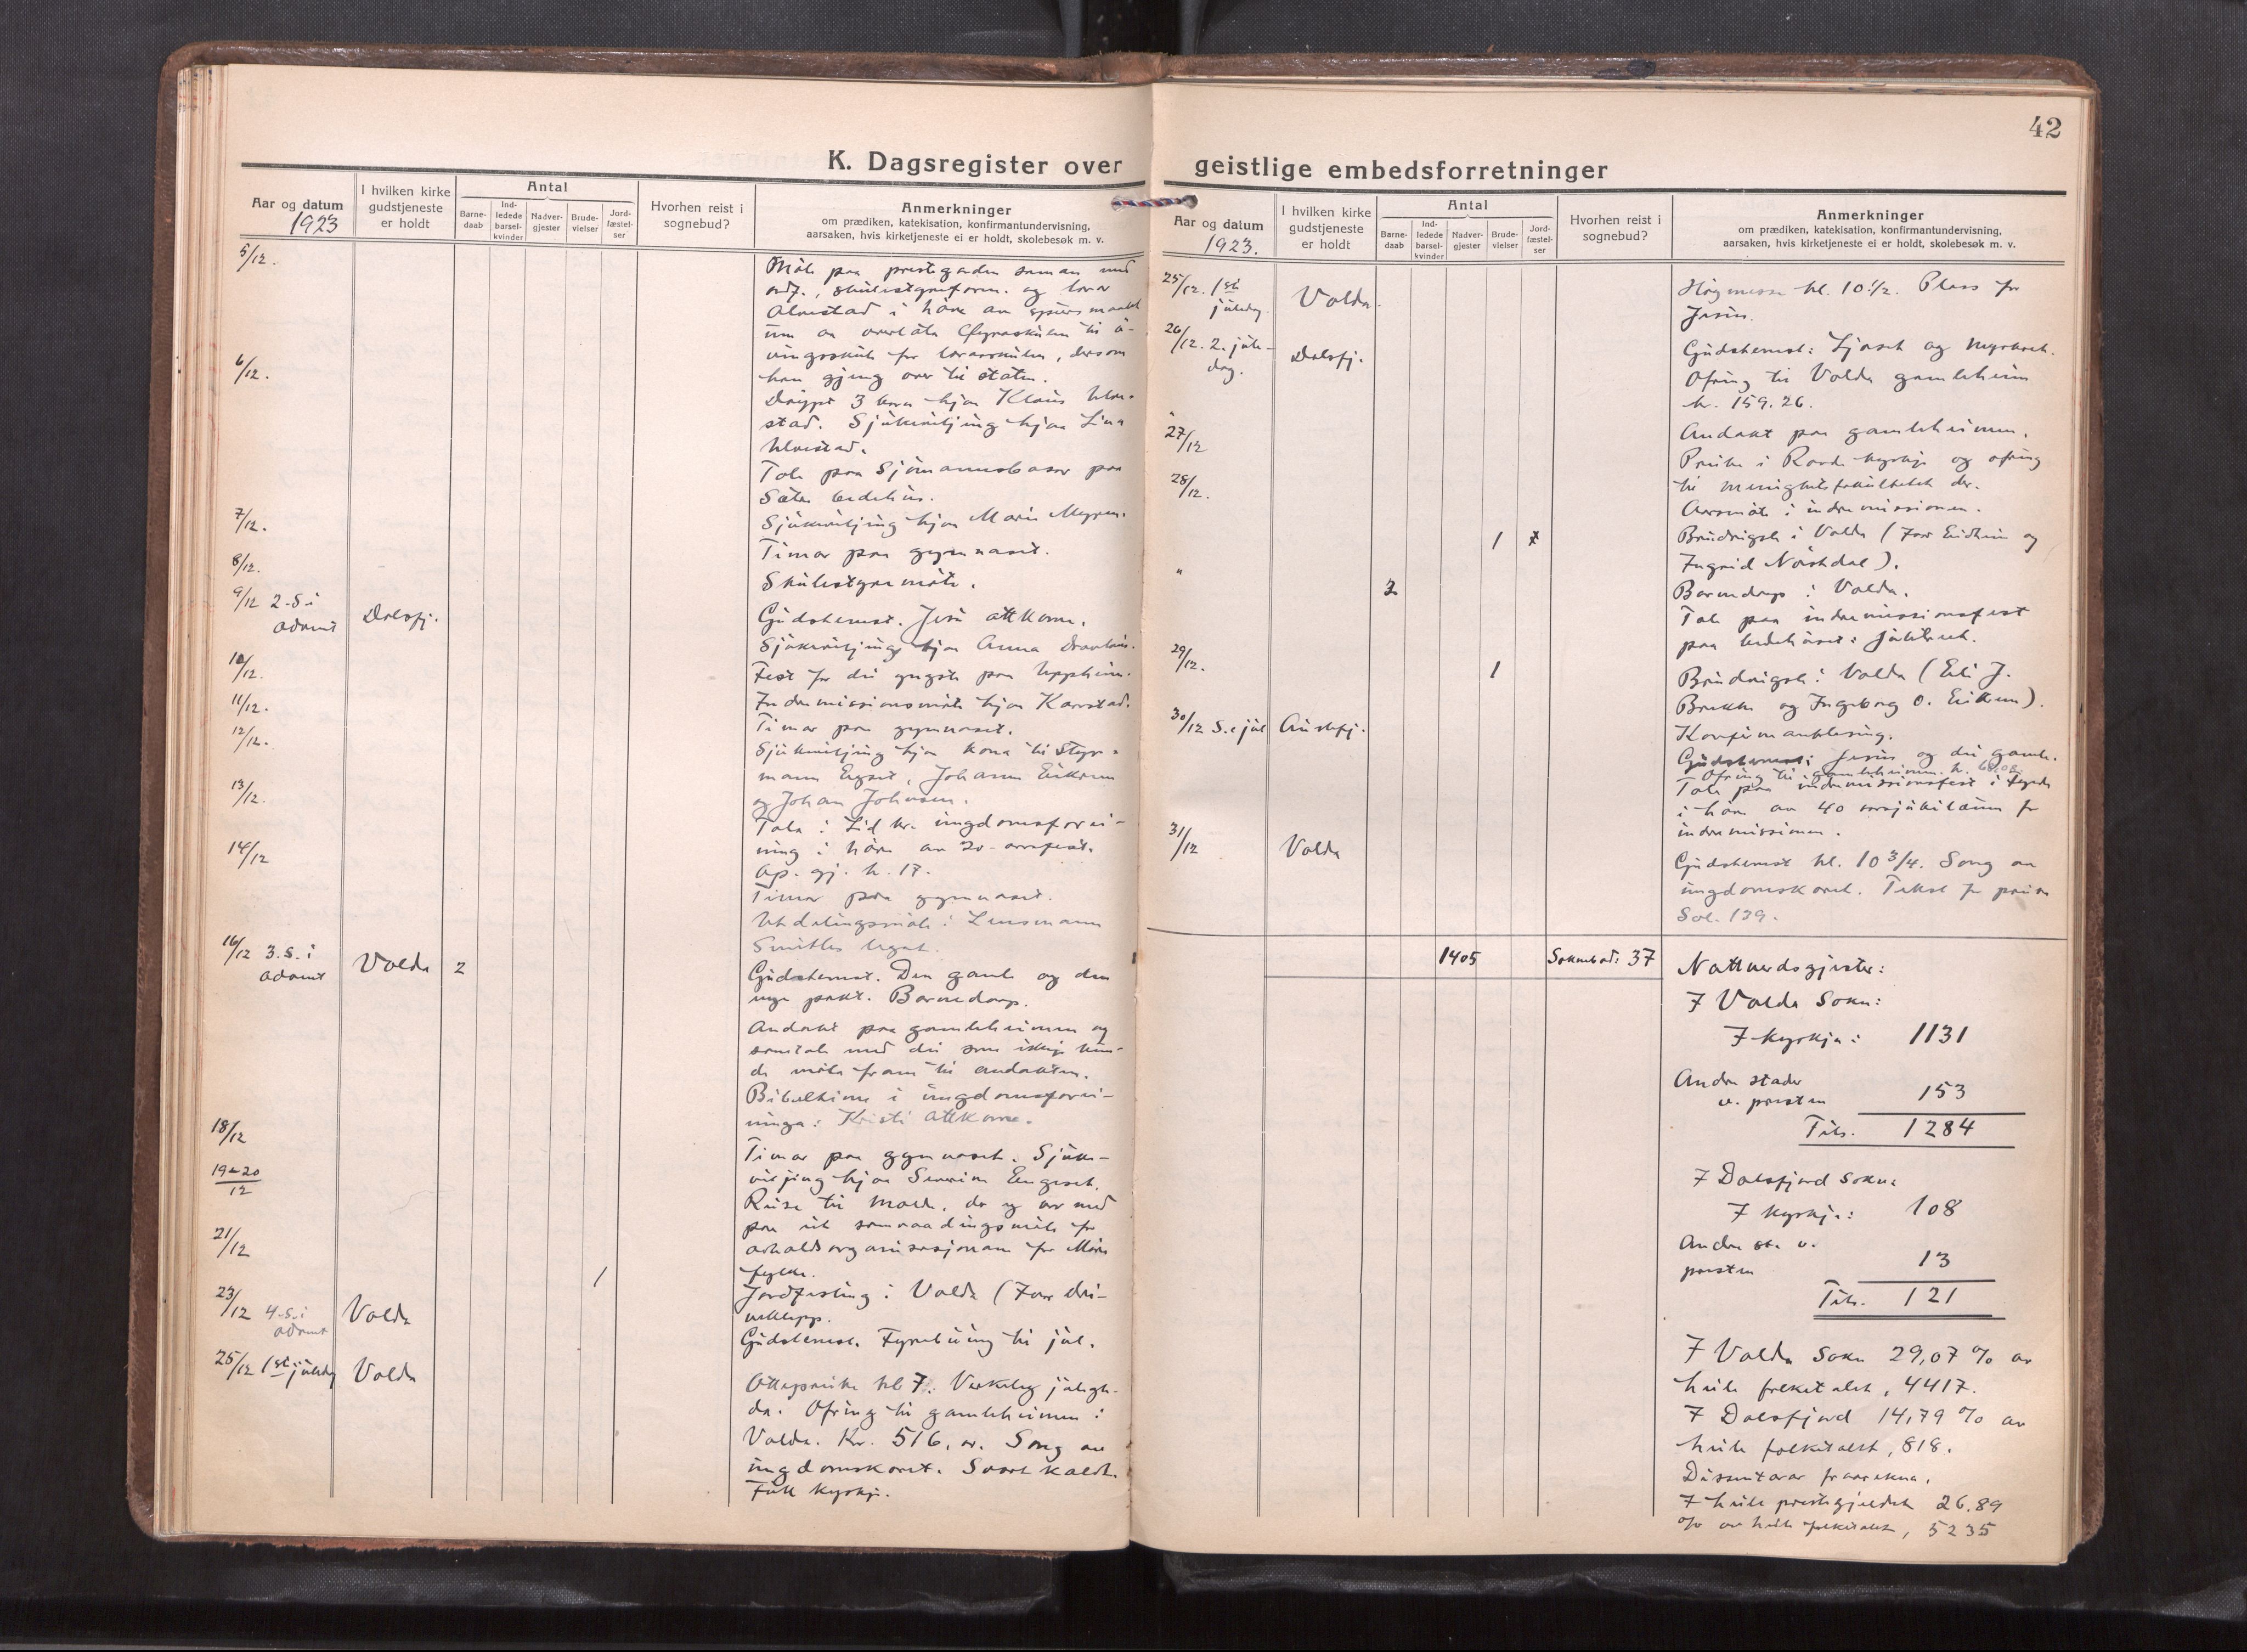 42
K. Dagsregister over geistlige embedsforretninger
Aar og datum
1923
I hvilken kirke
gudstjeneste
er holdt
Antal
Barne-
daab
Ind-
ledede
barsel-
kvinder
Nadver-
gjester
Brude-
vielser
Jord-
fæstel-
ser
Hvorhen reist i
sognebud?
Anmerkninger
om prædiken, katekisation, konfirmantundervisning,
aarsaken, hvis kirketjeneste ei er holdt, skolebesøk m. v.
5/12. Møte paa prestegarden saman med
ordf., skulestyreform. og lærar
Alvestad i høve av spursmaalet
um aa overlata Øyraskulen til ø-
vingsskule for lærarskulen, dersom
han gjeng over til staten.
6/12. Døypt 3 born hjaa Klaus Ulve-
stad. Sjukevitjing hjaa Lina
Ulvestad.
Tale paa Sjømannsbasar paa
Sætre bedehus.
7/12. Sjukevitjing hjaa Marie Myren.
Timar paa gymnaset.
8/12. Skulestyremøte.
9/12 2.S.i
advent Dalsfj. Gudstenest. Jesu attkome.
Sjukevitjing hjaa Anna
10/12. Fest for dei yngste paa Uppheim.
11/12. Indremissionsmøte hjaa Karstad.
12/12. Timar paa gymnaset.
Sjukevitjing hjaa kona til Styr-
mann Egset, Johanne Eikrem
og Johan Johnsen.
13/12. Tale i Lid kr. ungdomsforei-
ning i høve av 20-aarsfest.
Ap. gj. k. 17.
14/12 Timar paa gymnaset.
Utdelingsmøte i Lensmann
Smiths legat.
16/12 3.S.i
advent Volda 2 Gudstenest. Den gamle og den
nye pakt. Barnedaap.
Andakt paa gamleheimen og
samtale med dei som ikkje kun-
de møta fram til andakten.
Bibeltime i ungdomsforei-
ninga: Kristi attkome.
18/12 Timar paa gymnaset. Sjuke-
vitjing hjaa Severin Engeset.
19-20/12 Reise til Molde, da eg var med
paa eit samraadingsmøte for
avhaldsorganisasjonane for Møre
fylke.
21/12 1 Jordfesting i Volda (Ivar Dri-
veklepp.
23/12 4.S.i
advent Volda Gudstenest. Fyrebuing til jul.
25/12 1ste juledag Volda Ottepreike kl 7. Verkeleg julegle-
de. Ofring til gamleheimen i
Volda. Kr. 516,
Song av
ungdomskoret. Svært kaldt.
Full kyrkje.
Aar og datum
1923.
I hvilken kirke
gudstjeneste
er holdt
Antal
Barne-
daab
Ind-
ledede
barsel-
kvinder
Nadver-
gjester
Brude-
vielser
Jord-
fæstel-
ser
Hvorhen reist i
sognebud?
Anmerkninger
om prædiken, katekisation, konfirmantundervisning,
aarsaken, hvis kirketjeneste ei er holdt, skolebesøk m. v.
25/12. 1ste
juledag. Volda. Høgmesse kl. 10 1/2. Plass for
Jesus.
26/12. 2. jule-
dag. Dalsfj. Gudstenest: Ljoset og myrkret.
Ofring til Volda gamleheim
kr. 159.26.
27/12 Andakt paa gamleheimen.
Preike i Rovde kyrkje og ofring
til menighetsfakultetet der.
28/12. Aarsmøte i indremissionen.
1 Brudvigsle i Volda (Ivar Eidheim og
Ingrid Nørstdal).
" 3 Barnedaap i Volda.
Tale paa indremissionsfest
paa bedehuset:
29/12. 1 Brudvigsle i Volda (Eli J.
Brekke og Ingeborg O. Eikrem).
30/12 S.e jul Austefj. Konfirmantlesing.
Gudstenest: Jesus og dei gamle.
Ofring til gamleheimen. kr. 68.08.
Tale paa indremissionsfest i
i høve av 40 aarsjubilæum for
indremissionen.
31/12 Volda Gudstenest kl. 10 3/4. Song av
ungdomskoret. Tekst for preika
Sal. 139.
1405 Soknebod: 37 Nattverdsgjester:
I Volda Sokn:
I kyrkja: 1131
Andre stader
v. presten 153
Tils. 1284
I Dalsfjord Sokn:
I kyrkja: 108
Andre st. v.
presten 13
Tils. 121
I Volda Sokn 29,07 % av
heile folketalet, 4417.
I Dalsfjord 14,79 % av
heile folketalet, 818.
Dissentarar fraarekna.
I heile prestegjeldet 26.89
% av heile folketalet, 5235